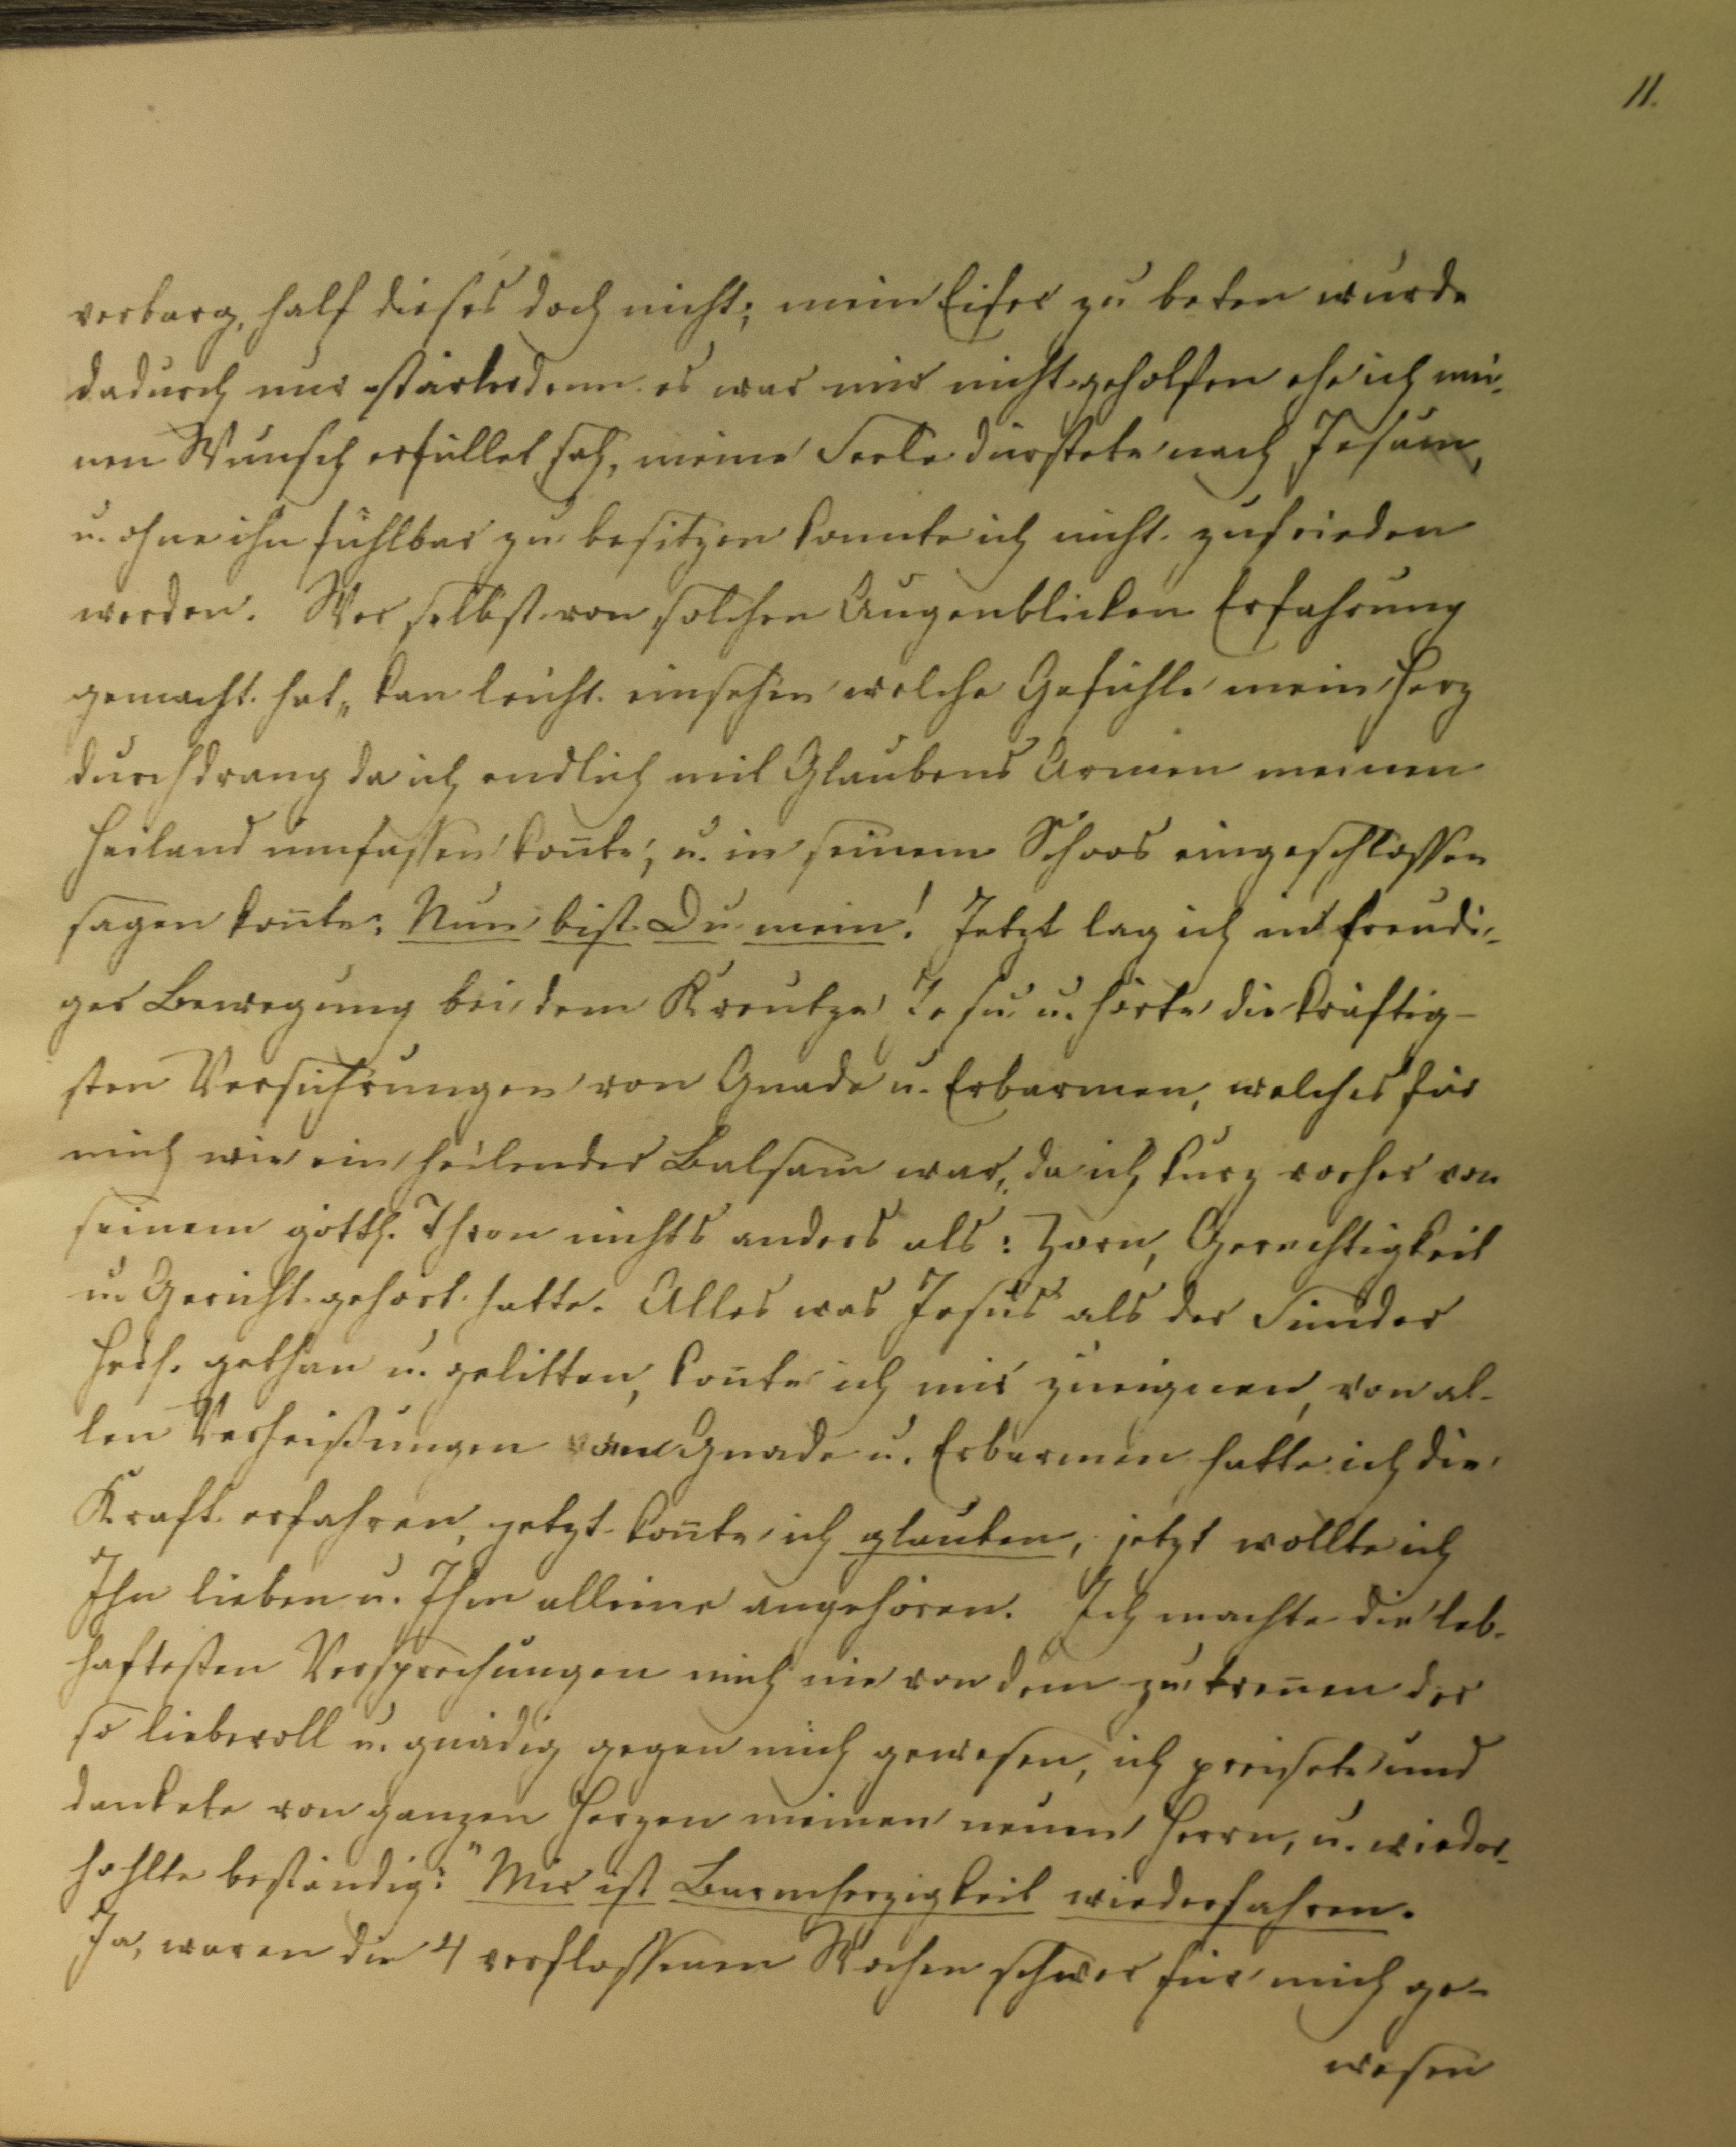 11.
verbarg, half dieses doch nicht; mein Eifer zu beten wurde
dadurch nur stärker denn es war mir nicht geholfen ehe ich mei-
nen Wunsch erfüllet sah, meine Seele dürstete nach Jesum,
u. ohne ihn fühlbar zu besitzen konnte ich nicht zufrieden
werden. Wer selbst von solchen Augenblicken Erfahrung
gemacht hat, kan leicht einsehen welche Gefühle mein Herz
durchdrang da ich endlich mit Glaubens Armen meinen
Heiland umfassen kon̅te, u. in seinem Schoos eingeschlossen
sagen kon̅te: Nun bist Du mein! Jetzt lag ich in freudi-
ger Bewegung bei dem Kreutze Jesu u. hörte die kräftig-
sten Versicherungen von Gnade u. Erbarmen, welches für
mich wie ein heilender Balsam war, da ich kurz vorher von
seinem göttl. Thron nichts anders als: Zorn, Gerechtigkeit
u. Gericht gehört hatte. Alles was Jesus als der Sünder
gethan u. gelitten, kon̅te ich mir zueignen, von al-
len Verheißungen von Gnade u. Erbarmen hatte ich die
Kraft erfahren, jetzt kon̅te ich glauben, jetzt wollte ich
Ihn lieben u. Ihm alleine angehören. Ich machte die leb-
haftesten Versprechungen mich nie von dem zu tren̅en der
so liebevoll u. gnädig gegen mich gewesen, ich preisete und
dankete von ganzen Herzen meinen neuen Herrn, u. wieder-
hohlte beständig: "Mir ist Barmherzigkeit wiederfahren.
Ja, waren die 4 verflossenen Wochen schwer für mich ge-
wesen